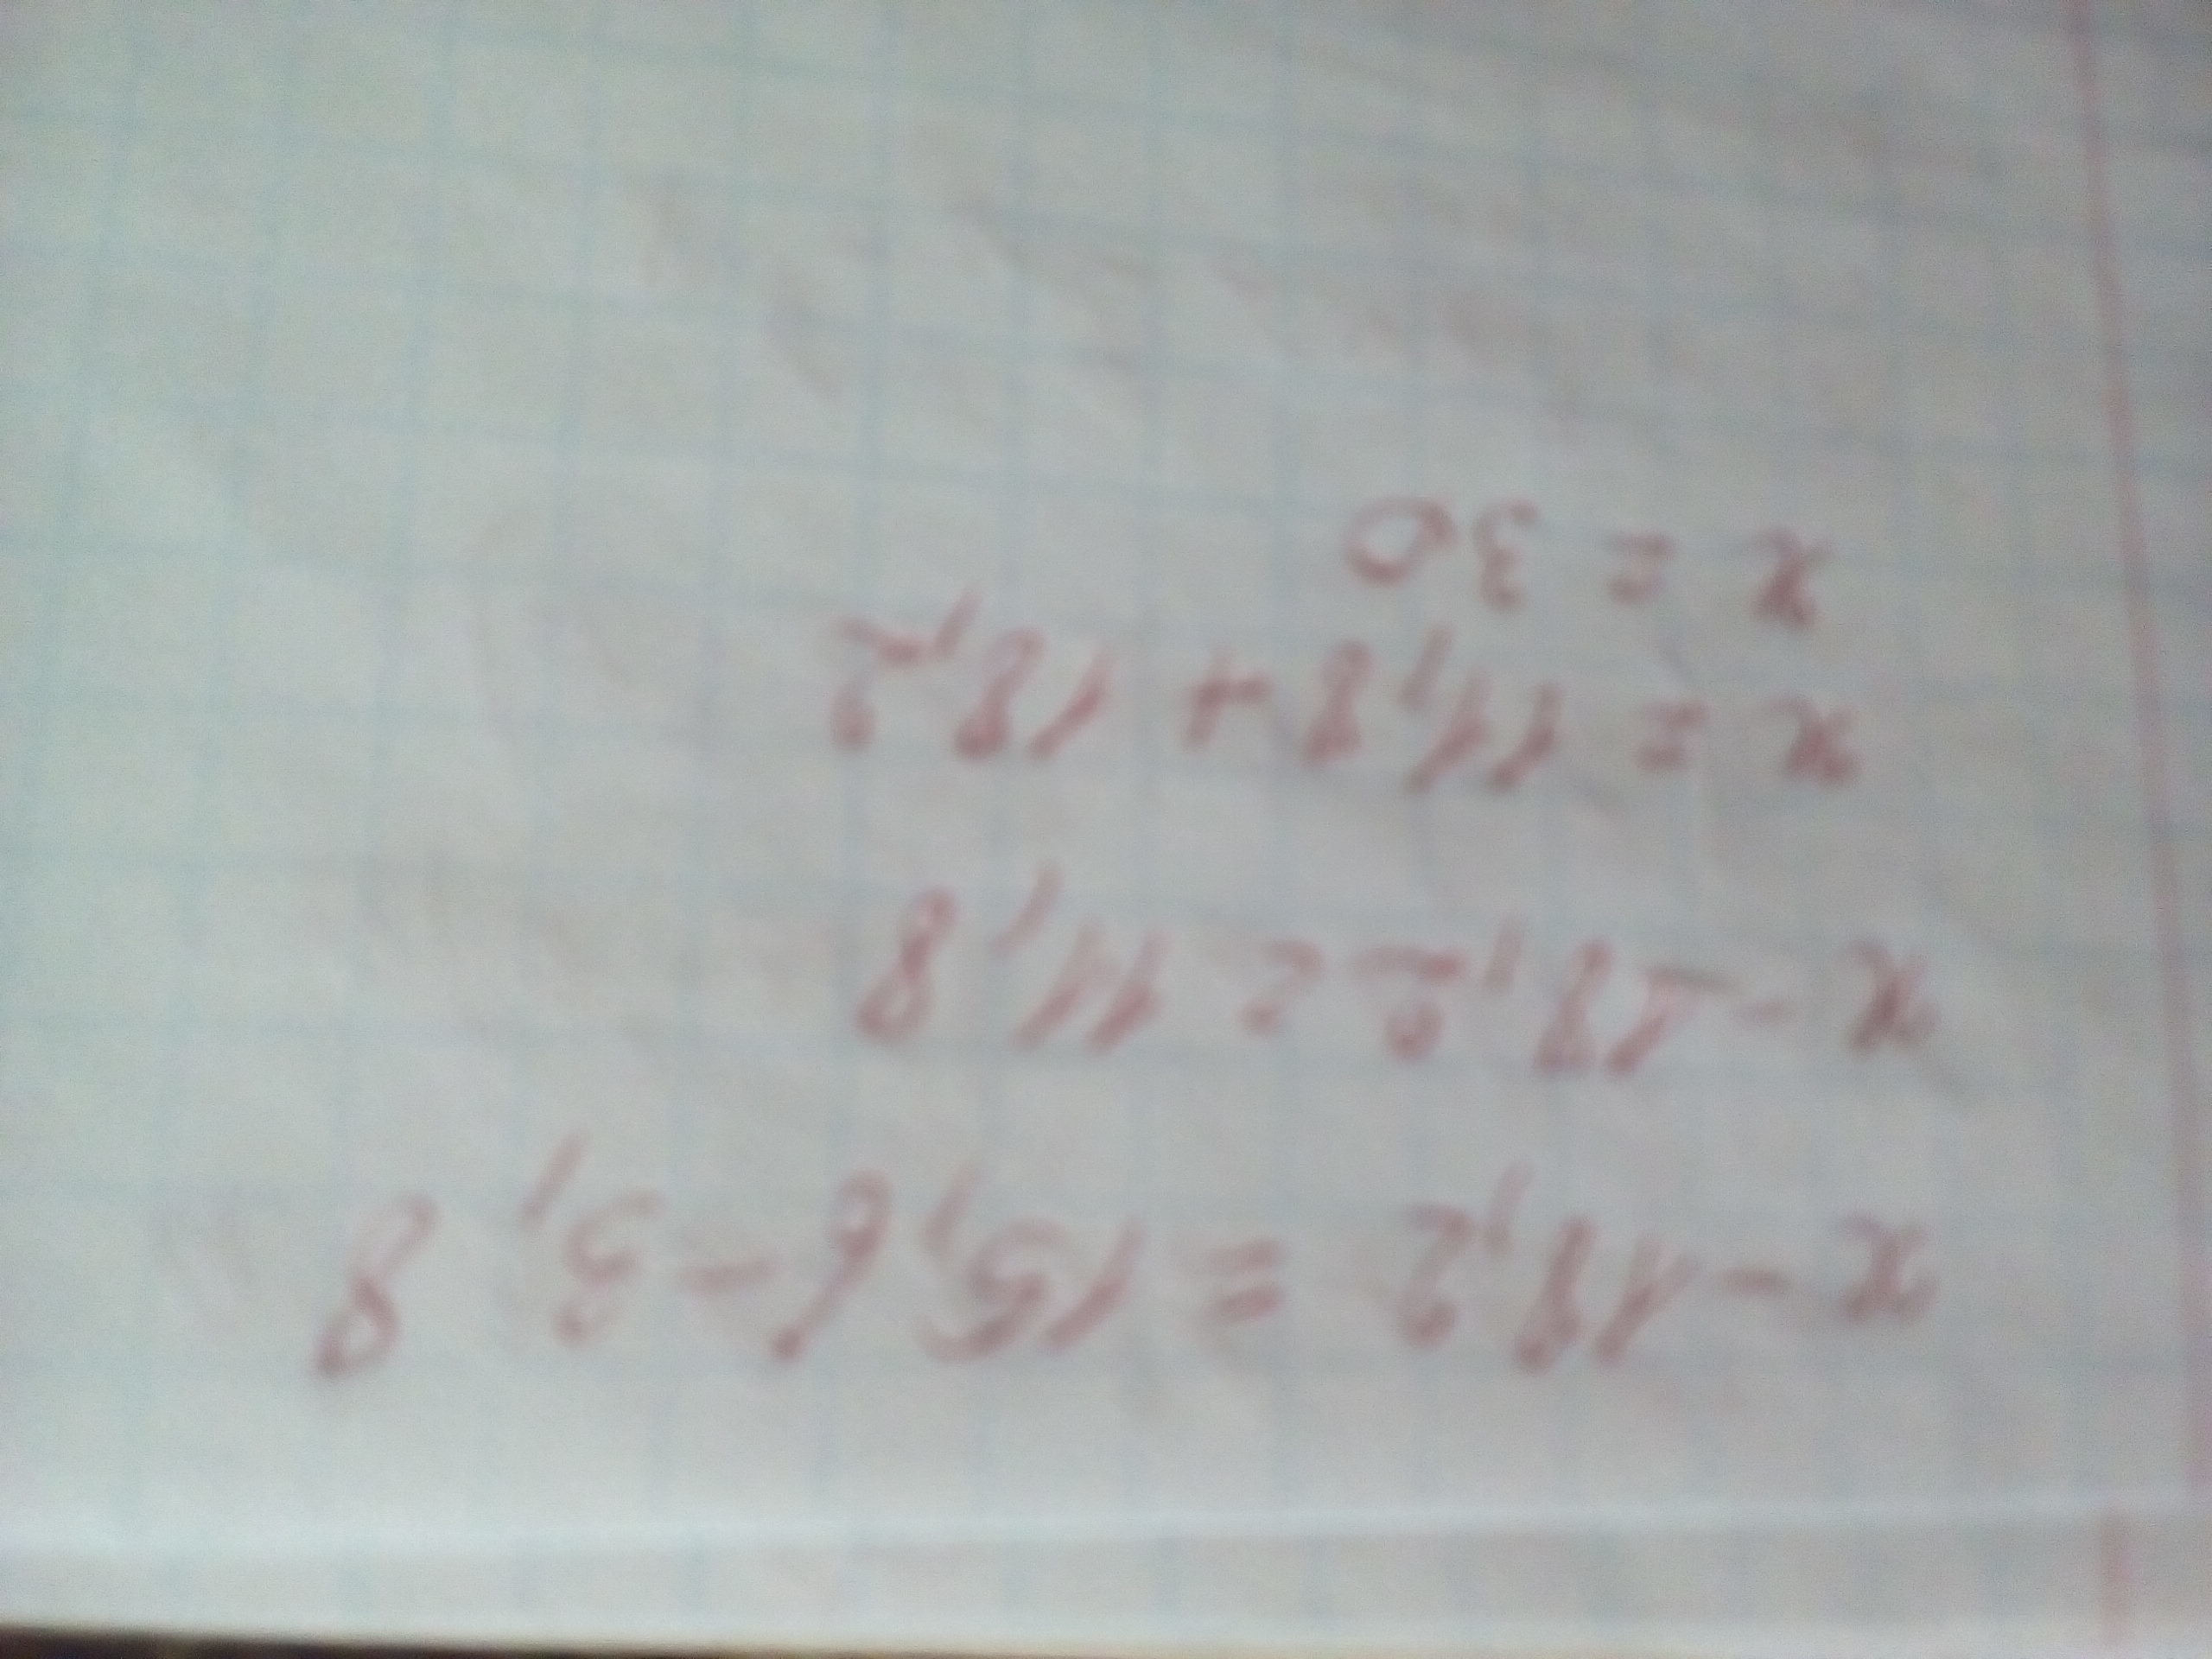 x - 18,2 = 15,6 - 3,8
x - 18,2 = 11,8
x = 11,8 + 18,2
x = 30